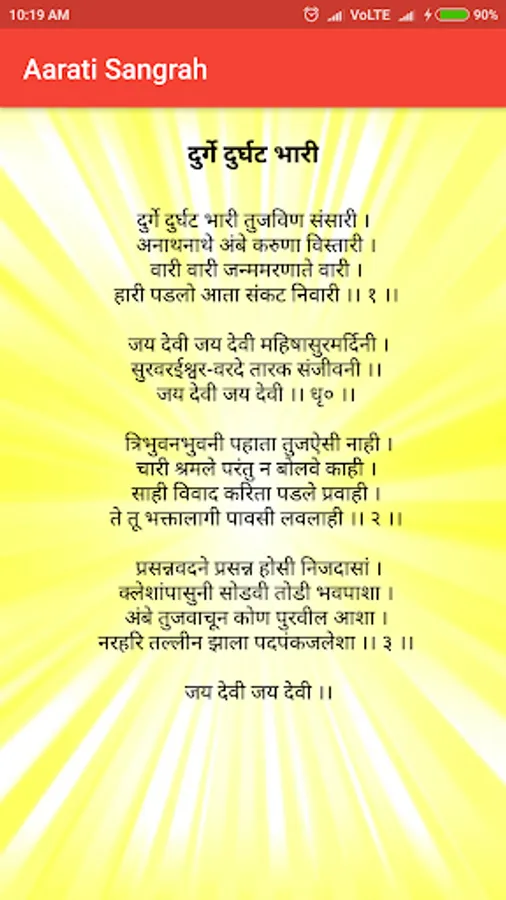 10:19 AM VoLTE 90%
Aarati Sangrah
दुर्गे दुर्घट भारी
दुर्गे दुर्घट भारी तुजविण संसारी ।
अनाथनाथे अंबे करुणा विस्तारी ।
वारी वारी जन्ममरणाते वारी ।
हारी पडलो आता संकट निवारी ।। १ ।।
जय देवी जय देवी महिषासुरमर्दिनी ।
सुरवरईश्वर-वरदे तारक संजीवनी ।।
जय देवी जय देवी ।। धृ० ।।
त्रिभुवनभुवनी पहाता तुजऐसी नाही ।
चारी श्रमले परंतु न बोलवे काही ।
साही विवाद करिता पडले प्रवाही ।
ते तू भक्तालागी पावसी लवलाही ।। २ ।।
प्रसन्नवदने प्रसन्न होसी निजदासां ।
क्लेशांपासुनी सोडवी तोडी भवपाशा ।
अंबे तुजवाचून कोण पुरवील आशा ।
नरहरि तल्लीन झाला पदपंकजलेशा ।। ३ ।।
जय देवी जय देवी ।।